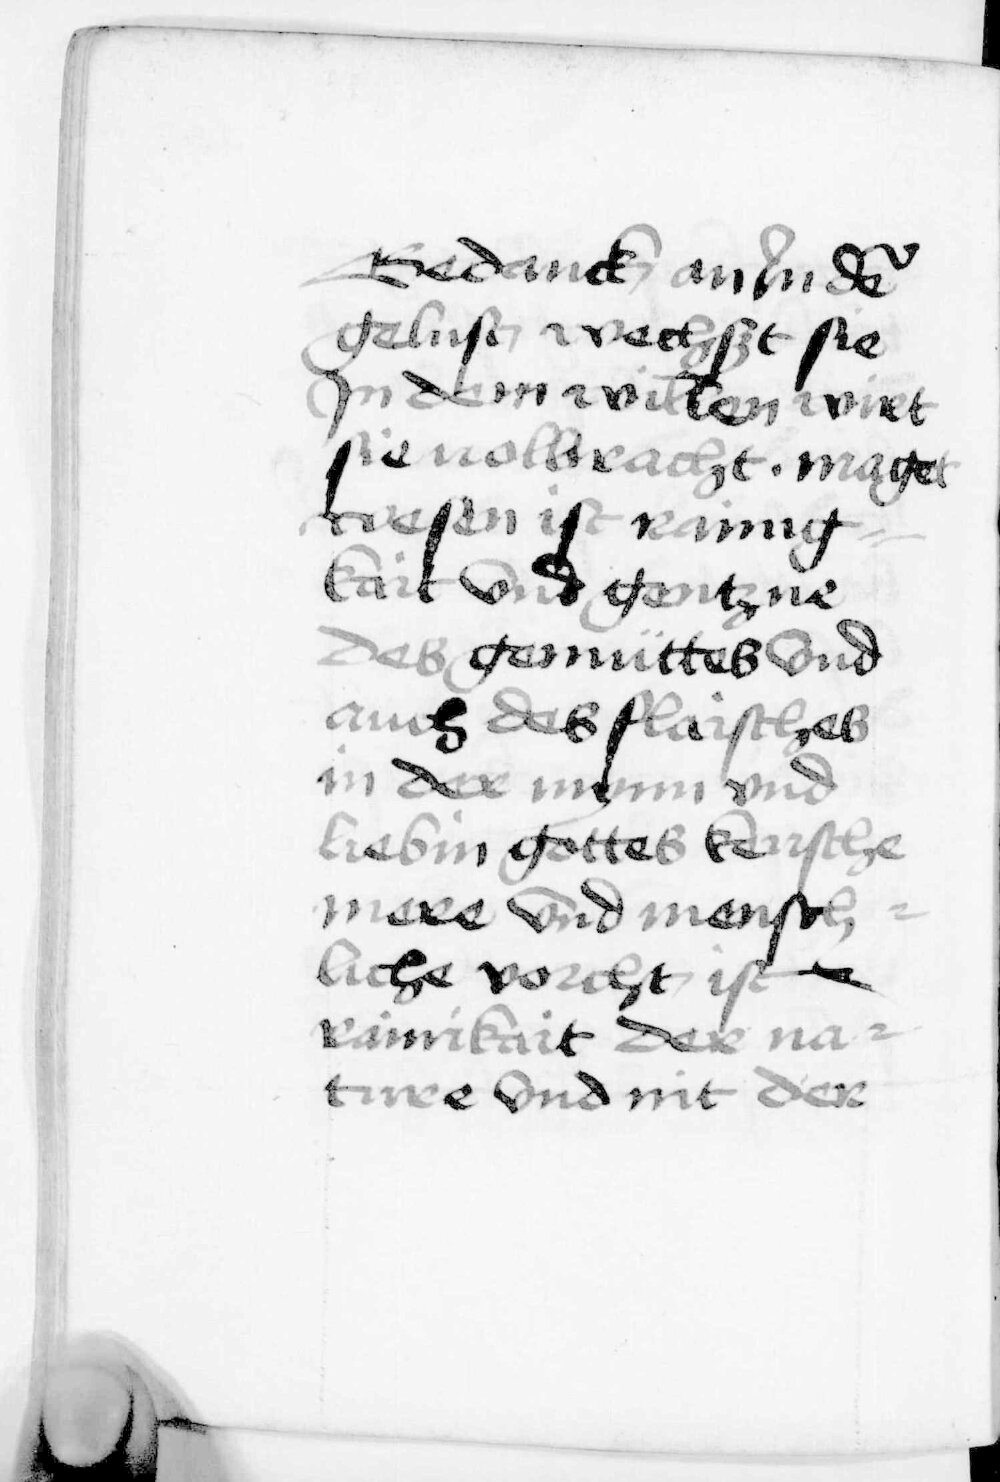 Gedanck an Jn der
gelust wechszt sie
Jn dem willen wirt
sie uolbracht. maget
wesen ist rainig=
kait vnd gentzne
des gemüttes vnd
auch des flaisches
in der mynn vnd
liebin gottes keüsche
mere vnd mensch=
liche vorcht ist
rainikait der na=
ture vnd nit der